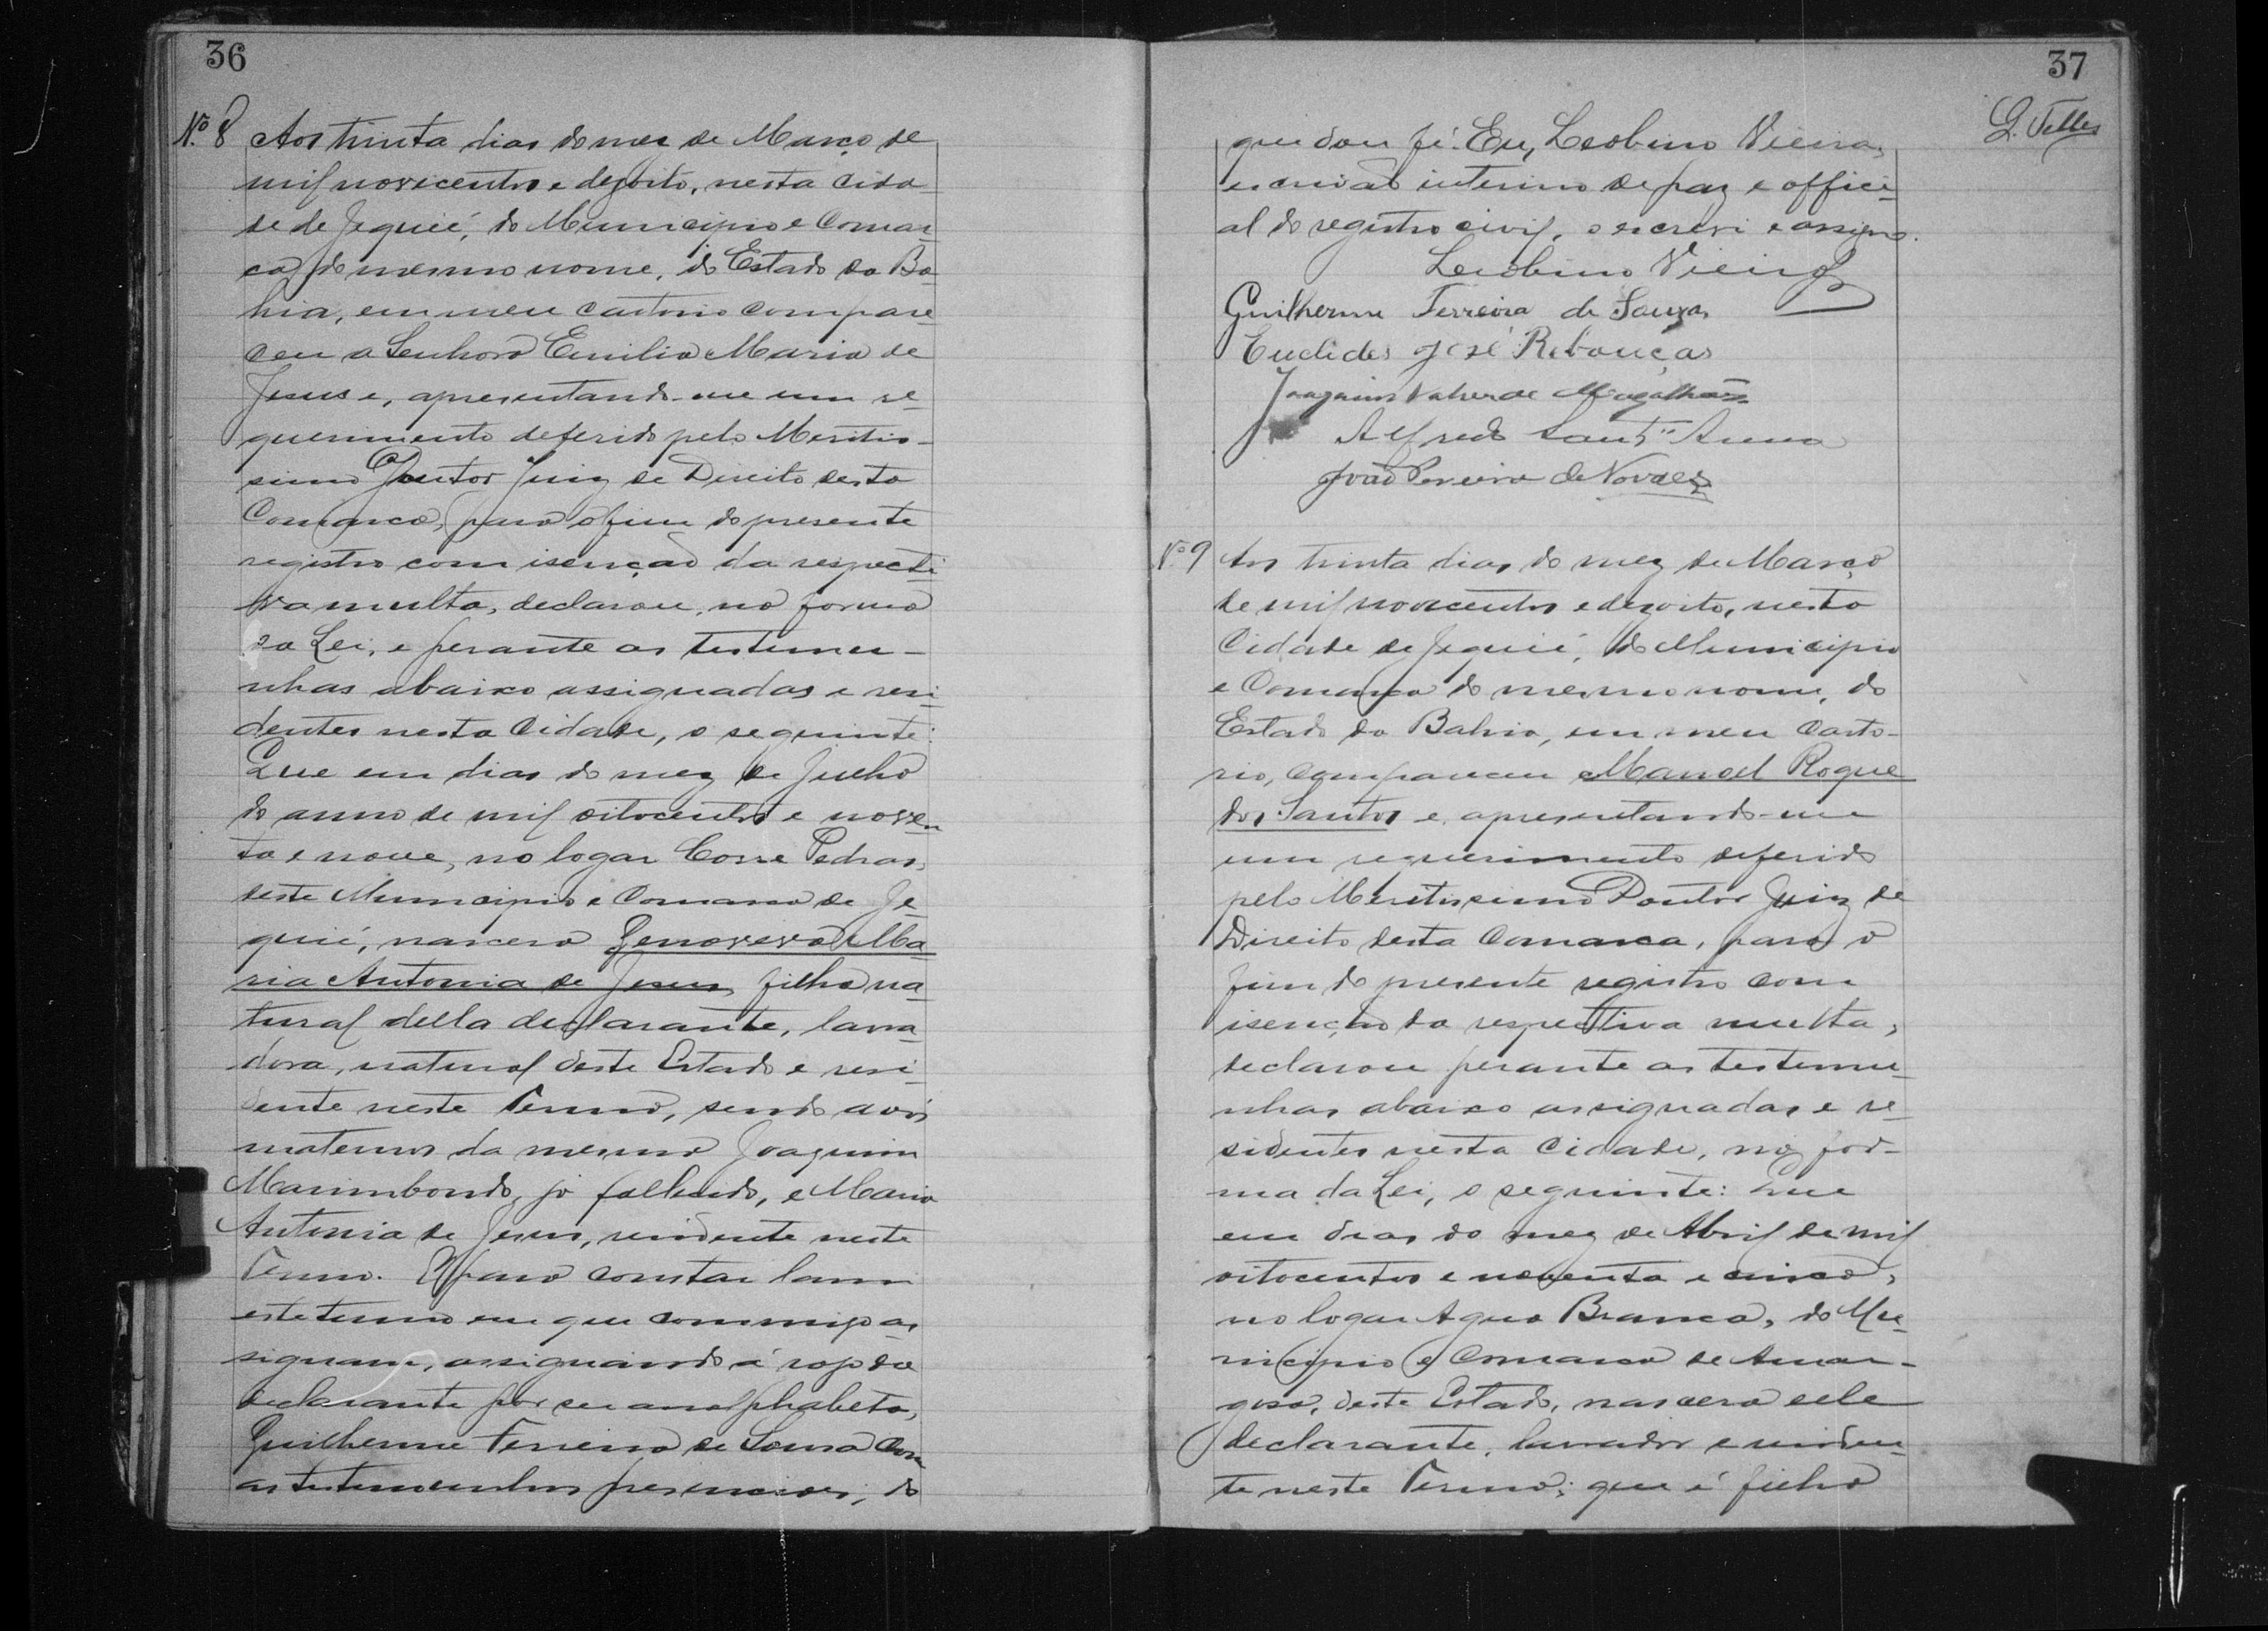 36
Nº 8 Aos trinta dias do mez de Março de
mil novecentos e dezoito, nesta cida
de de Jequié, do Municipio e Comar-
ca do mesmo nome, do Estado da Ba-
hia, em meu cartorio compare-
ceu a Senhora Emilia Maria de
Jesus e, apresentando-me um re-
querimento deferido pelo Meritis-
simo Doutor Juiz de Direito desta
Comarca, para o fim do presente
registro com isenção da respecti-
va multa, declarou, na forma
da Lei, e perante as testemu-
nhas abaixo assignadas e resi-
dentes nesta Cidade, o seguinte:
Que em dias do mez de Julho
do anno de mil oitocentos e noven
ta e nove, no logar Corre Pedras,
deste Municipio e Comarca de Je-
quié, nascera Genoveva Ma-
ria Antonia de Jesus, filha na-
tural della declarante, lavra-
dora, natural deste Estado e resi-
dente neste Termo, sendo avós
maternos da mesma Joaquim
Marimbondo, já fallecido, e Maria
Antonia de Jesus, residente neste
Termo. E para constar lavrei
este termo em que commigo as-
signam, assignando á rogo da
declarante por ser analphabeta,
Guilherme Ferreira de Souza com
as testemunhas presenciaes; do
37
G. Telles
que dou fé. Eu, Leobino Vieira,
escrivão interino de paz e offici-
al do registro civil, o escrevi e assigno.
Leobino Vieira
Guilherme Ferreira de Souza
Euclides José Rebouças
Joaquim Valverde Magalhães
Alfredo Sant'Anna
João Pereira de Novaes
Nº 9 Aos trinta dias do mez de Março
de mil novecentos e dezoito, nesta
Cidade de Jequié, do Municipio
e Comarca do mesmo nome, do
Estado da Bahia, em meu Carto-
rio, compareceu Manoel Roque
dos Santos e, apresentando-me
um requerimento deferido
pelo Meritissimo Doutor Juiz de
Direito desta Comarca, para o
fim do presente registro com
isenção da respectiva multa,
declarou perante as testemu-
nhas abaixo assignadas e re-
sidentes nesta Cidade, na for-
ma da Lei, o seguinte: Que
em dias do mez de Abril de mil
oitocentos e noventa e cinco,
no logar Agua Branca, do Mu-
nicipio e Comarca de Amar-
gosa, deste Estado, nascera elle
declarante, lavrador e residen-
te neste Termo; que é filho